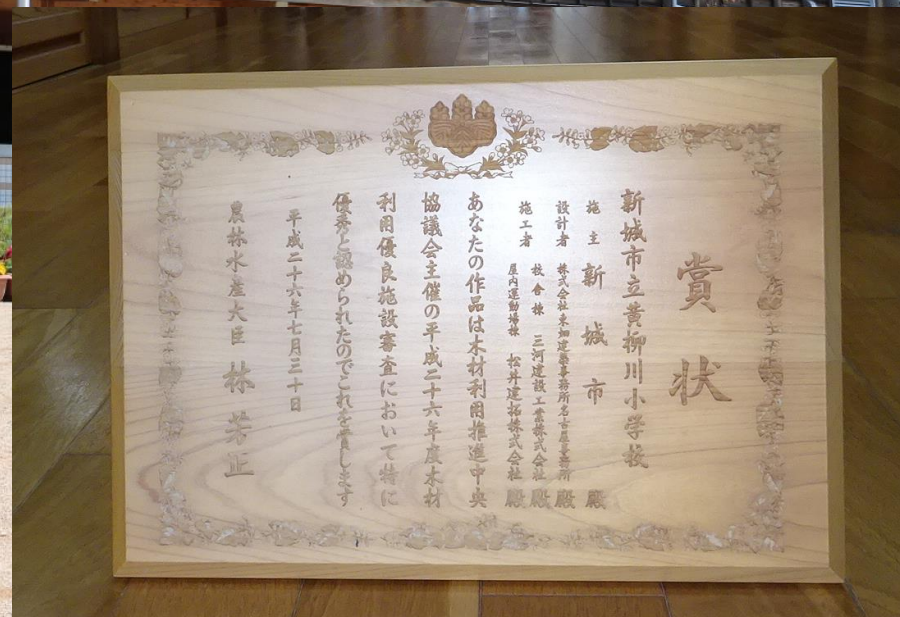 賞状
新城市立黄柳川小学校
施主 新城市 殿
設計者 株式会社東畑建築事務所名古屋事務所 殿
施工者 校舎棟 三河建設工業株式会社 殿
屋内運動場棟 松井建拓株式会社 殿
あなたの作品は木材利用推進中央
協議会主催の平成二十六年度木材
利用優良施設審査において特に
優秀と認められたのでこれを賞します
平成二十六年七月三十日
農林水産大臣 林芳正